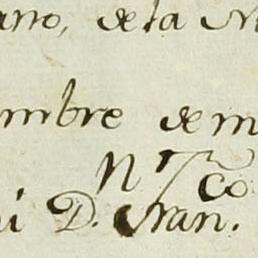 ano, de la N
mbre de m
n co
i D. Fran.